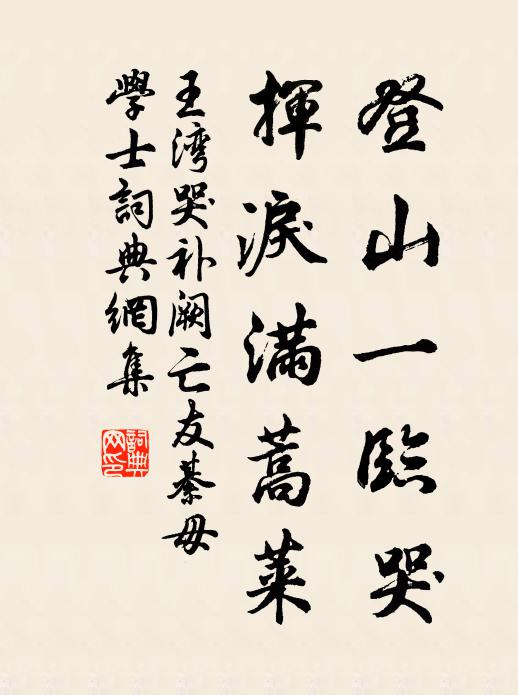 登山一臨哭
揮淚滿蒿萊
王湾哭补阙亡友綦毋
學士詞典網集
詞典
网印